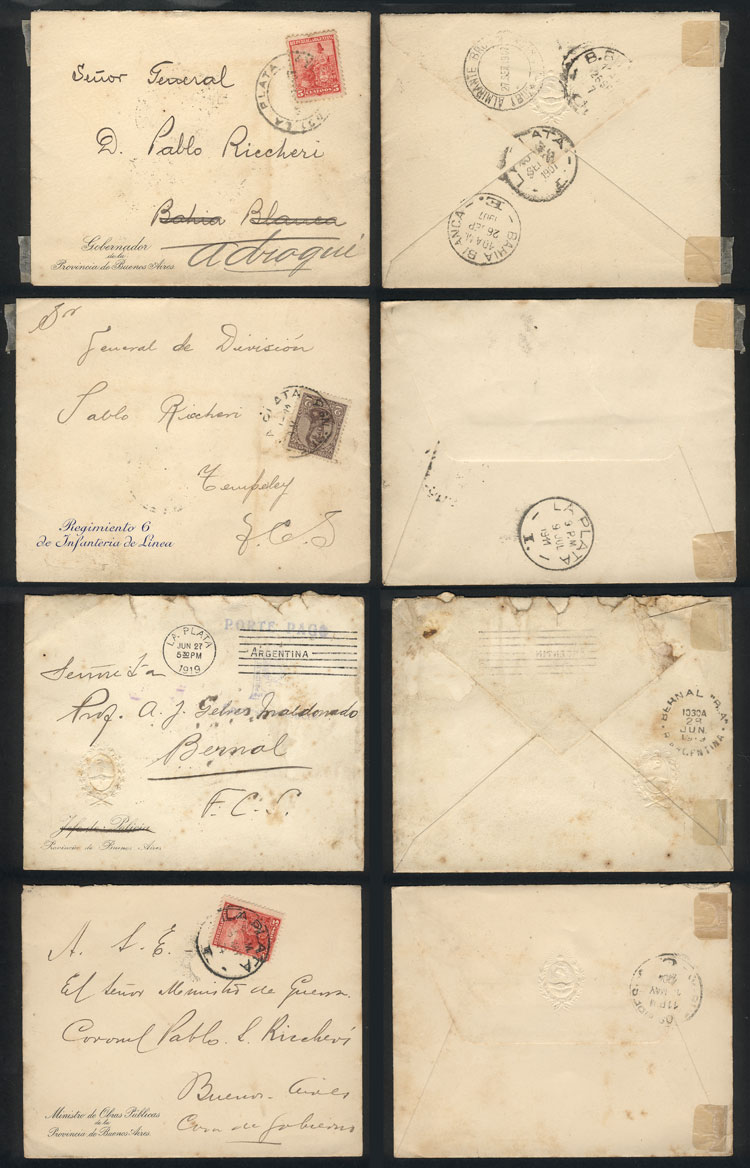 Señor General
D. Pablo Riccheri
Bahia Blanca
Adrogué
Gobernador
de la
Provincia de Buenos Aires
LA PLATA
5 CENTAVOS 5
BAHIA BLANCA
10 A.M.
26 SEP
1907
LA PLATA
SET
1907
Sr
General de División
Pablo Riccheri
Temperley
F.C.S
Regimiento 6
de Infantería de Línea
LA PLATA
LA PLATA
9 PM
9 JUL
1911
PORTE PAGO
LA PLATA
JUN 27
5 30 PM
1919
ARGENTINA
Señorita
Prof. A. J. Gelves Maldonado
Bernal
F.C.S.
Provincia de Buenos Aires
BERNAL "B.A."
1030A
28
JUN.
ARGENTINA
LA PLATA
A. S. E.
El Señor Ministro de Guerra
Coronel Pablo S. Riccheri
Buenos Aires
Casa de Gobierno
Ministro de Obras Públicas
de la
Provincia de Buenos Aires
11 PM
MAY